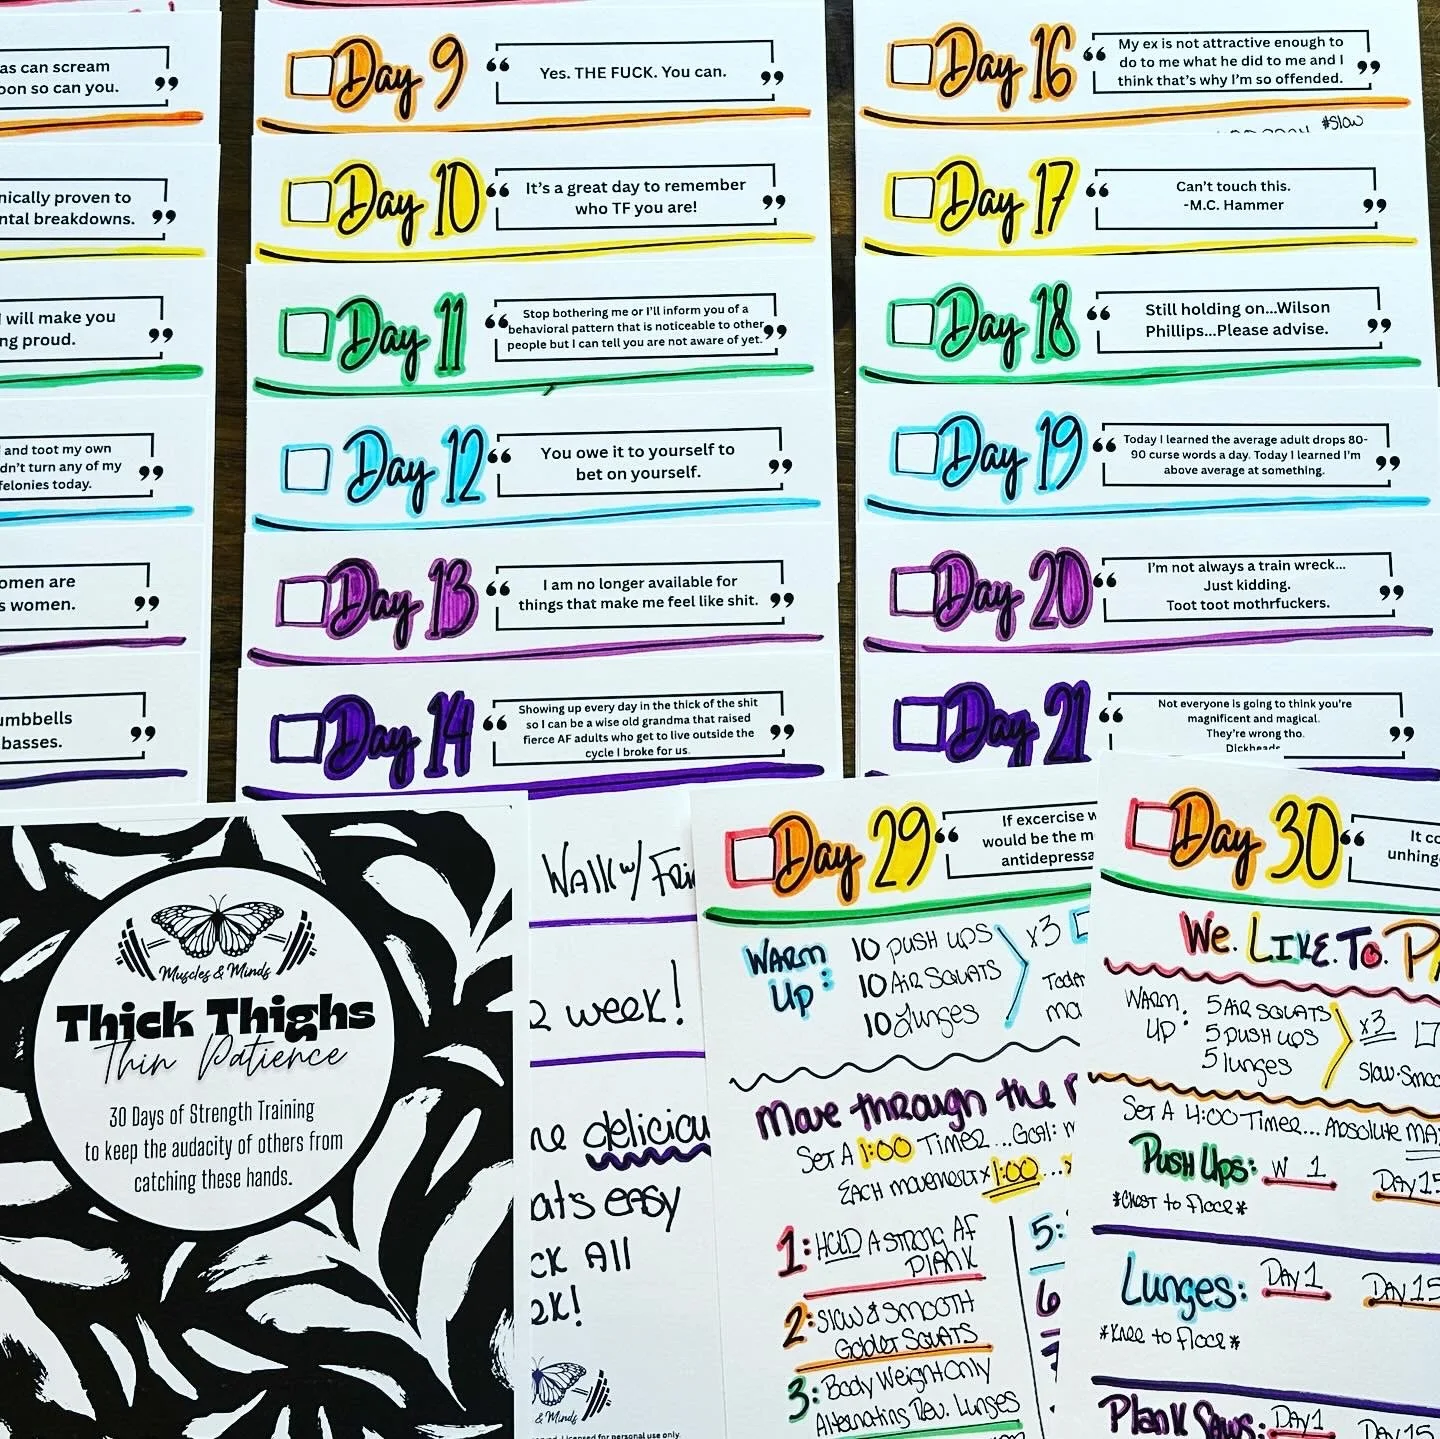 as can scream
oon so can you.
nically proven to
ntal breakdowns.
will make you
ng proud.
and toot my own
dn't turn any of my
felonies today.
omen are
s women.
umbbells
basses.
Day 9
“ Yes. THE FUCK. You can. ”
Day 10
“ It's a great day to remember
who TF you are! ”
Day 11
“ Stop bothering me or I'll inform you of a
behavioral pattern that is noticeable to other
people but I can tell you are not aware of yet. ”
Day 12
“ You owe it to yourself to
bet on yourself. ”
Day 13
“ I am no longer available for
things that make me feel like shit. ”
Day 14
“ Showing up every day in the thick of the shit
so I can be a wise old grandma that raised
fierce AF adults who get to live outside the
cycle I broke for us. ”
Day 16
“ My ex is not attractive enough to
do to me what he did to me and I
think that's why I'm so offended. ”
#Slow
Day 17
“ Can't touch this.
-M.C. Hammer ”
Day 18
“ Still holding on...Wilson
Phillips...Please advise. ”
Day 19
“ Today I learned the average adult drops 80-
90 curse words a day. Today I learned I'm
above average at something. ”
Day 20
“ I'm not always a train wreck...
Just kidding.
Toot toot mothrfuckers. ”
Day 21
“ Not everyone is going to think you're
magnificent and magical.
They're wrong tho.
Dickheads ”
Muscles & Minds
Thick Thighs
Thin Patience
30 Days of Strength Training
to keep the audacity of others from
catching these hands.
Walk w/ Frie
week!
ne deliciou
ats easy
ck All
ek!
& Minds
Licensed for personal use only.
Day 29
“ If excercise w
would be the m
antidepressa
Warm
Up:
10 push ups
10 Air Squats
10 Lunges
x3
Toda
ma
Move through the
Set A 1:00 Timer...Goal: m
Each movement x 1:00...
1: Hold A strong AF
Plank
2: Slow & Smooth
Goblet Squats
3: Body Weight Only
Alternating Rev. Lunges
5:
6
Day 30
“ It co
unhing
We. Like. To. P
Warm
Up:
5 Air Squats
5 push ups
5 lunges
x3
Slow. Smoo
Set A 4:00 Timer... Absolute ma
Push Ups: W 1
Day 15
*Chest to floor*
Lunges: Day 1
Day 15
*Knee to floor*
Plank Saws: Day 1
Day 15